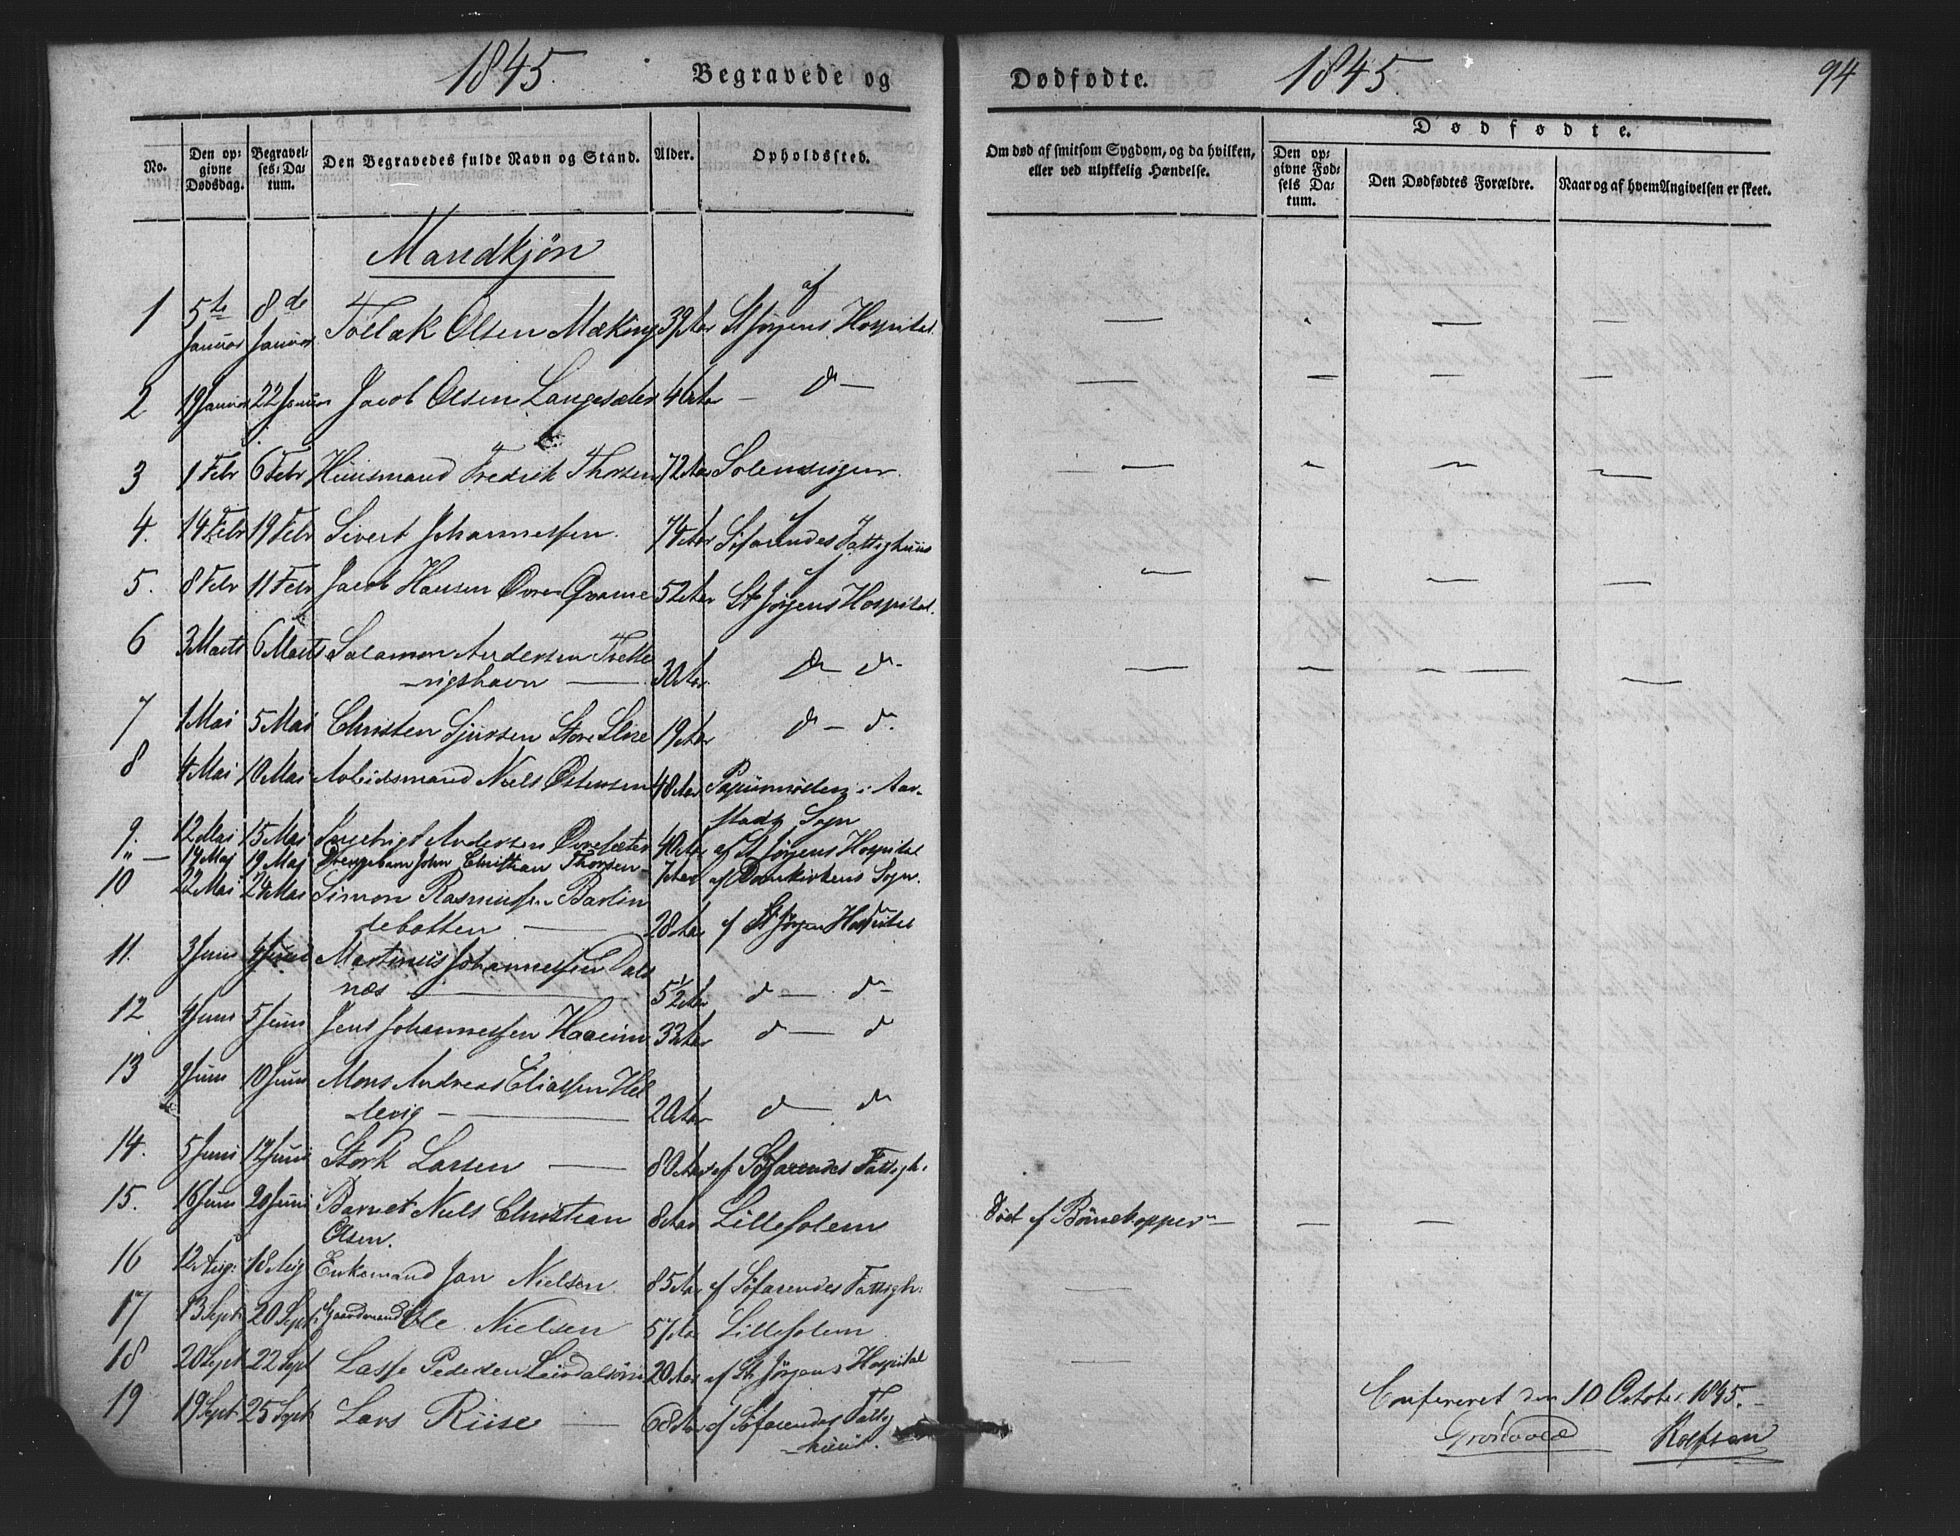 1845. Begravede og Dødfødte. 1845. 94
No. Den opgivne Dødsdag. Begravelses-Datum. Den Begravedes fulde Navn og Stand. Alder. Opholdssted. Om død af smitsom Sygdom, og da hvilken, eller ved ulykkelig Hændelse. Dødfødte. Den opgivne Fødsels Datum. Den Dødfødtes Forældre. Naar og af hvem Angivelsen er skeet.
Mandkjøn
1 5te Januar 8de Januar Tollak Olsen Mæking 39 Aar af St Jørgens Hospital
2 19 Januar 22 Januar Jacob Olsen Langesæter 46 Aar — do —
3 1 Febr 6 Febr Huusmand Fredrik Thorsen 72 Aar Solemsvigen
4. 14 Febr 19 Febr Sivert Johannessen. 74 Aar af Søfarendes Fattighuus
5. 8 Febr 11 Febr Jacob Hansen Øvre Qvamme 52 Aar af St Jørgens Hospital.
6 3 Marts 6 Marts Salamon Andersen
vigshavn — 30 Aar. do do
7 1 Mai 5 Mai Christen Sjursen Store 19 Aar do — do.
8 4 Mai 10 Mai Arbeidsmand Niels Østensen 48 Aar Papiirmøllen i Aar-
stads Sogn
9. 12 Mai 15 Mai Ingebrigt Andersen Øvresæter 40 Aar af St Jørgens Hospital
" — 14 Maj 19 Maj Drengebarn John Christian Thorsen 7 Aar af Domkirkens Sogn.
10 22 Mai 24 Mai Simon Rasmussen Barlin
debotten — 28 Aar af St Jørgen Hospital
11. 3 Juni 4 Juni Martinus Johannessen Dals
næs — 5 1/2 Aar do — do
12 4 Juni 5 Juni Jens Johannessen Haaeim 33 Aar do — do
13 9 Juni 10 Juni Mons Andreas Eliassen Hel
levig — 20 Aar do — do
14. 5 Juni 12 Juni Stork Larsen — 80 Aar af Søfarendes Fattigh:
15. 16 Juni 20 Juni Barnet Niels Christian 8 Aar Lillesolem Død af Børnekopper — — —
Olsen.
16 12 Aug: 18 Aug Enkemand Jan Nielsen 85 Aar af Søfarendes Fattigh:
17 13 Sept: 20 Sept: Gaardmand Ole Nielsen 57 Aar Lillesolem
18 20 Sept 22 Sept Lasse Pedersen Leirdalsøren 20 Aar af St Jørgens Hospital
19 19 Sept 25 Sept: Lars Riise — 68 Aar af Søfarendes Fattig
huus.
Confereret den 10 October 1845.
Grønvold Rolfsen